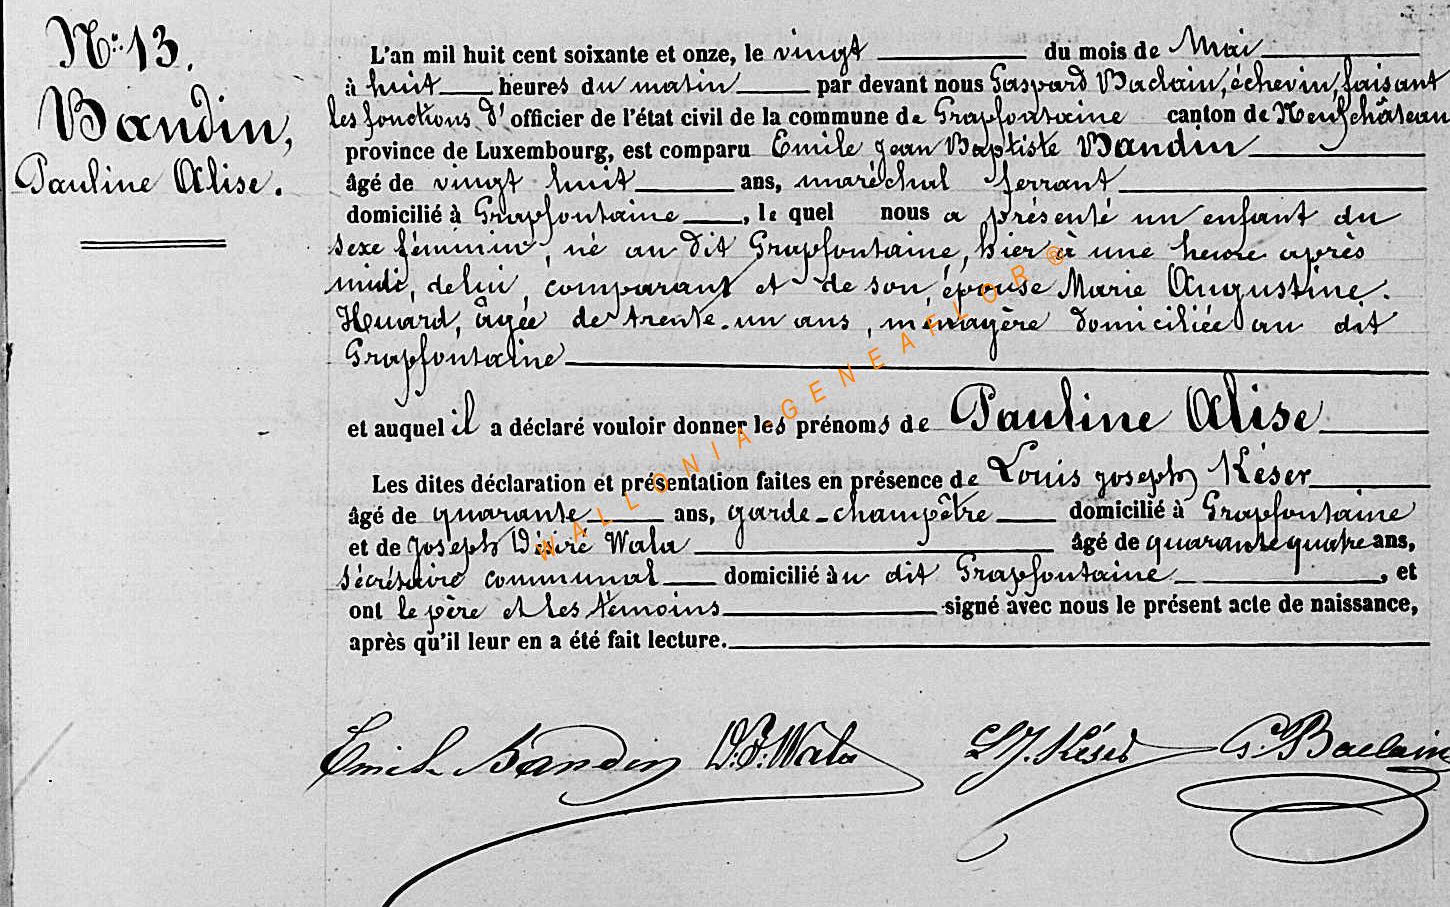 N° 13.
Bandin,
Pauline Alise.
L'an mil huit cent soixante et onze, le vingt du mois de Mai
à huit heures du matin par devant nous Gaspard Baclain, échevin, faisant
les fonctions d'officier de l'état civil de la commune de Grapfontaine canton de Neufchâteau
province de Luxembourg, est comparu Emile Jean Baptiste Bandin
âgé de vingt huit ans, maréchal ferrant
domicilié à Grapfontaine, le quel nous a présenté un enfant du
sexe féminin, né au dit Grapfontaine, hier à une heure après
midi, de lui, comparant et de son épouse Marie Augustine
Huard, âgée de trente-un ans, ménagère domiciliée au dit
Grapfontaine
et auquel il a déclaré vouloir donner les prénoms de Pauline Alise
Les dites déclaration et présentation faites en présence de Louis Joseph Késer
âgé de quarante ans, garde-champêtre domicilié à Grapfontaine
et de Joseph Désiré Wala âgé de quarante quatre ans,
sécrétaire communal domicilié au dit Grapfontaine, et
ont le père et les témoins signé avec nous le présent acte de naissance,
après qu'il leur en a été fait lecture.
Emile Bandin D.J. Wala L.J. Késer G. Baclain
WALLONIA-GENEAFLOR®